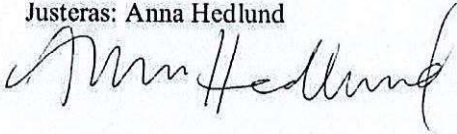 Justeras: Anna Hedlund
Anna Hedlund